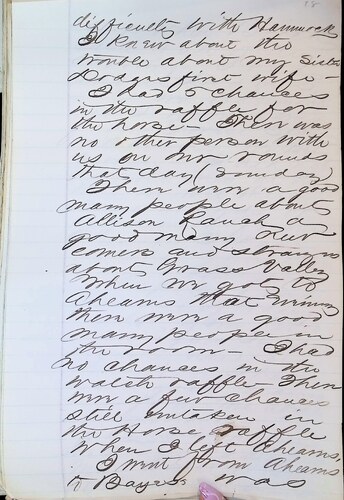 difficulty with Hammock
I knew about the
trouble about my Sister
Dodges first wife —
I had 5 chances
in the raffle for
the horse — There was
no other person with
us on our rounds
that day (Sunday)
There were a good
many people about
Allison Ranch a
good many new
comers and strangers
about Grass Valley
When we got to
Ahearns that evening
there were a good
many people in
the room — I had
no chances in the
watch raffle There
were a few chances
still untaken in
the Horse raffle
When I left Ahearns,
I went from Ahearns
to
was